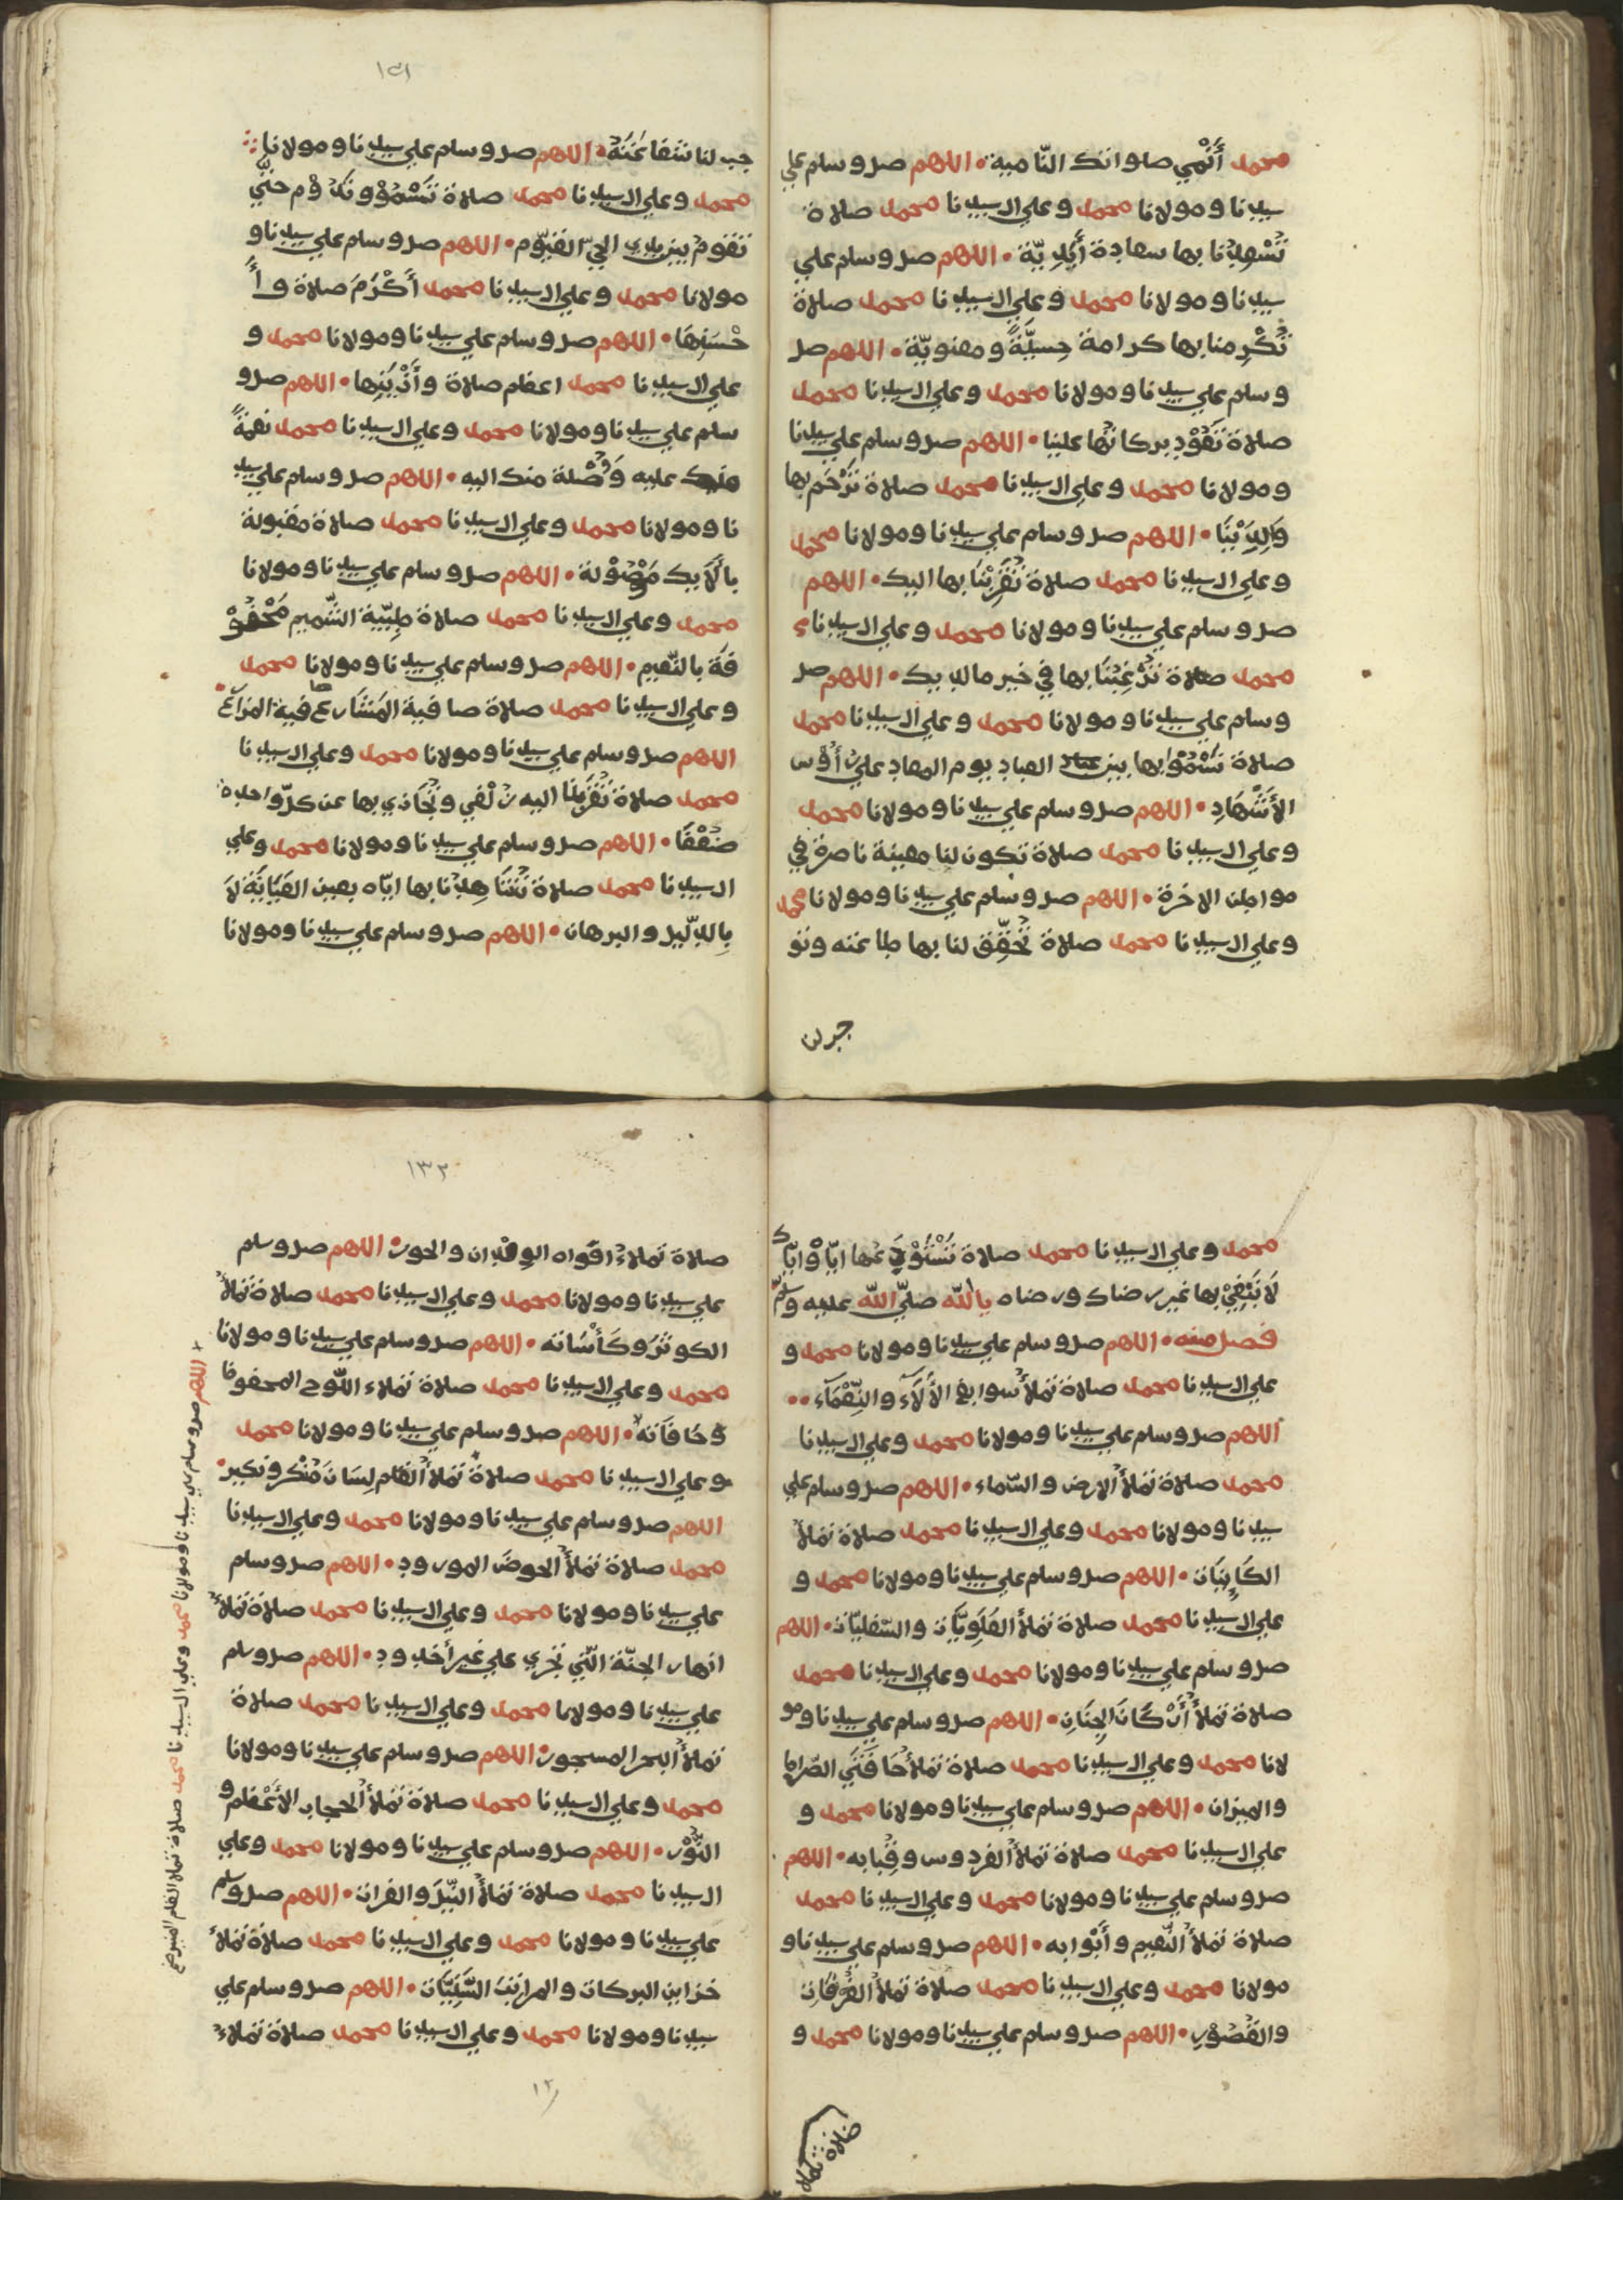 محمد أَنْمِي صلواتك النّامية • اللهم صل وسلم علي
سيدنا ومولانا محمد وعلي ال سيدنا محمد صلاة
تُسْعِدُنا بها سعادة أَبَدِيّة • اللهم صل وسلم علي
سيدنا ومولانا محمد وعلي ال سيدنا محمد صلاة
تُكْرِمنا بها كرامة حِسِيَّةً ومعنويّة • اللهم صل
وسلم علي سيدنا ومولانا محمد وعلي ال سيدنا محمد
صلاة تَعُوْد بركاتُها علينا • اللهم صل وسلم علي سيدنا
ومولانا محمد وعلي ال سيدنا محمد صلاة تَرْحَم بها
وَالِدَيْنَا • اللهم صل وسلم علي سيدنا ومولانا محمد
وعلي ال سيدنا محمد صلاة تُقَرِّبْنَا بها اليك • اللهم
صل وسلم علي سيدنا ومولانا محمد وعلي ال سيدنا
محمد صلاة تُرَغِّبْنَا بها في خير ما لديك • اللهم صل
وسلم علي سيدنا ومولانا محمد وعلي ال سيدنا محمد
صلاة نَسْمُوْا بها بين العباد يوم المعاد علي رُؤُس
الأَشْهَادِ • اللهم صل وسلم علي سيدنا ومولانا محمد
وعلي ال سيدنا محمد صلاة تكون لنا معينة ناصرة في
مواطن الاخرة • اللهم صل وسلم علي سيدنا ومولانا محمد
وعلي ال سيدنا محمد صلاة تُحَقِّق لنا بها طاعته وتو
جب لن
١٣١
جب لنا شفاعَتَهُ • اللهم صل وسلم علي سيدنا ومولانا
محمد وعلي ال سيدنا محمد صلاة تَسْمُوْ وتَدُوْم حتَّي
تقوم بين يدي الحيّ القيّوم • اللهم صل وسلم علي سيدنا و
مولانا محمد وعلي ال سيدنا محمد أَكْرَمَ صلاة وأَ
حْسَنِهَا • اللهم صل وسلم علي سيدنا ومولانا محمد و
علي ال سيدنا محمد اعظم صلاة وأَزْيَنِها • اللهم صل و
سلم علي سيدنا ومولانا محمد وعلي ال سيدنا محمد نعمةً
منك عليه وَوُصْلة منك اليه • اللهم صل وسلم علي سيد
نا ومولانا محمد وعلي ال سيدنا محمد صلاة مقبولة
بِأَلَايِك مَوْصُوْلة • اللهم صل وسلم علي سيدنا ومولانا
محمد وعلي ال سيدنا محمد صلاة طيّبة الشّميم مَحْفُوْ
فَة بالنّعيم • اللهم صل وسلم علي سيدنا ومولانا محمد
وعلي ال سيدنا محمد صلاة صافية المَشَارع
اللهم صل وسلم علي سيدنا ومولانا محمد وعلي ال سيدنا
محمد صلاة تُقَرِّبُنَا اليه زُلْفي وتُجَازي بها عن كلّ واحدة
ضِعْفًا • اللهم صل وسلم علي سيدنا ومولانا محمد وعلي
ال سيدنا محمد صلاة بها ايّاه بعين العِيَانِ لَا
بِالدّليل والبرهان • اللهم صل وسلم علي سيدنا ومولانا
محمد وعلي ال سيدنا محمد صلاة
لَا نَبْتَغِيْ بها غير رضاك ورضاه يا الله صلّي الله عليه وسلّم
فصل منه • اللهم صل وسلم علي سيدنا ومولانا محمد و
علي ال سيدنا محمد صلاة تملأُ سوابغ الأَلَآءِ والنِّعْمَآءِ ••
اللهم صل وسلم علي سيدنا ومولانا محمد وعلي ال سيدنا
محمد صلاة تملأُ الارض والسّماء • اللهم صل وسلم علي
سيدنا ومولانا محمد وعلي ال سيدنا محمد صلاة تملأُ
الكَايِنَات • اللهم صل وسلم علي سيدنا ومولانا محمد و
علي ال سيدنا محمد صلاة تملأُ العُلْوِيَّات والسّفليّات • اللهم
صل وسلم علي سيدنا ومولانا محمد وعلي ال سيدنا محمد
صلاة تملأُ أَرْكَانَ الجِنَانِ • اللهم صل وسلم علي سيدنا ومو
لانا محمد وعلي ال سيدنا محمد صلاة تملأُ حَافَتَي الصّراط
والميزان • اللهم صل وسلم علي سيدنا ومولانا محمد و
علي ال سيدنا محمد صلاة تملأُ الفردوس وقِبابه • اللهم
صل وسلم علي سيدنا ومولانا محمد وعلي ال سيدنا محمد
صلاة تملأُ النّعيم وأَبْوابه • اللهم صل وسلم علي سيدنا و
مولانا محمد وعلي ال سيدنا محمد صلاة تملأُ الغُرُفَاتِ
والقُصُوْرِ • اللهم صل وسلم علي سيدنا ومولانا محمد و
صلاة تملا
١٣٢
صلاة تملاءُ افَواه الوِلْدان والحور • اللهم صل وسلم
علي سيدنا ومولانا محمد وعلي ال سيدنا محمد صلاة تملأُ
الكوثَرَ وكَأْسَاته • اللهم صل وسلم علي سيدنا ومولانا
محمد وعلي ال سيدنا محمد صلاة تملاء اللّوح المحفوظ
وحَافَاته • اللهم صل وسلم علي سيدنا ومولانا محمد
وعلي ال سيدنا محمد صلاة تملأُ الفَم لِسَان مُنْكَر ونكير •
اللهم صل وسلم علي سيدنا ومولانا محمد وعلي ال سيدنا
محمد صلاة تملأُ الحوضَ المورود • اللهم صل وسلم
علي سيدنا ومولانا محمد وعلي ال سيدنا محمد صلاة تملأُ
انهار الجنّة الّتي تجري علي غير أخدود • اللهم صل وسلم
علي سيدنا ومولانا محمد وعلي ال سيدنا محمد صلاة
تملأُ البحر المسجور • اللهم صل وسلم علي سيدنا ومولانا
محمد وعلي ال سيدنا محمد صلاة تملأُ الحجاب الأَعْظم و
النُّوْر • اللهم صل وسلم علي سيدنا ومولانا محمد وعلي
ال سيدنا محمد صلاة تملأُ النِّيْلَ والفرات • اللهم صل وسلم
علي سيدنا ومولانا محمد وعلي ال سيدنا محمد صلاة تملأُ
خزاين البركات والمراتبَ السَّنِيَّات • اللهم صل وسلم علي
سيدنا ومولانا محمد وعلي ال سيدنا محمد صلاة تملاءُ
اللهم صل وسلم علي سيدنا ومولانا محمد وعلي ال سيدنا محمد صلاة تملا